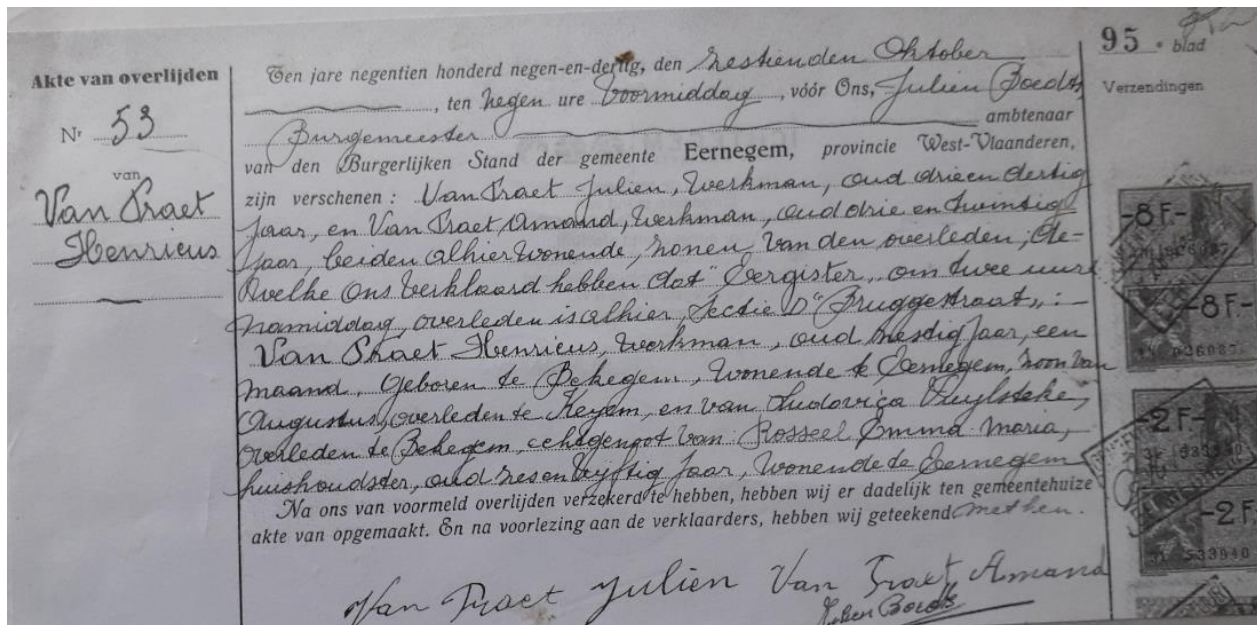 95 . blad
Akte van overlijden
Nr 53
van
Van Praet
Henricus
Ten jare negentien honderd negen-en-dertig, den zestienden Oktober
, ten negen ure Voormiddag, vóór Ons, Julien Boedts,
Burgemeester ambtenaar
van den Burgerlijken Stand der gemeente Eernegem, provincie West-Vlaanderen,
zijn verschenen : Van Praet Julien, Werkman, oud drie en dertig
jaar, en Van Praet Amand, Werkman, oud drie en twintig
jaar, beiden alhier wonende, zonen van den overleden; de-
welke Ons verklaard hebben dat "Eergister, om twee uur
namiddag, overleden is alhier, Sectie D "Bruggestraat„ :
Van Praet Henricus, werkman, oud zestig jaar, een
maand, geboren te Bekegem, wonende te Eernegem, zoon van
Augustus, overleden te Keyem, en van Ludovica Vuylsteke,
overleden te Bekegem, echtgenoot van Rosseel Emma Maria,
huishoudster, oud zes en vijftig jaar, wonende te Eernegem
Na ons van voormeld overlijden verzekerd te hebben, hebben wij er dadelijk ten gemeentehuize
akte van opgemaakt. En na voorlezing aan de verklaarders, hebben wij geteekend met hen.
Van Praet Julien Van Praet Amand
Julien Boedts
Verzendingen
-8 F-
-8 F-
-2 F-
-2 F